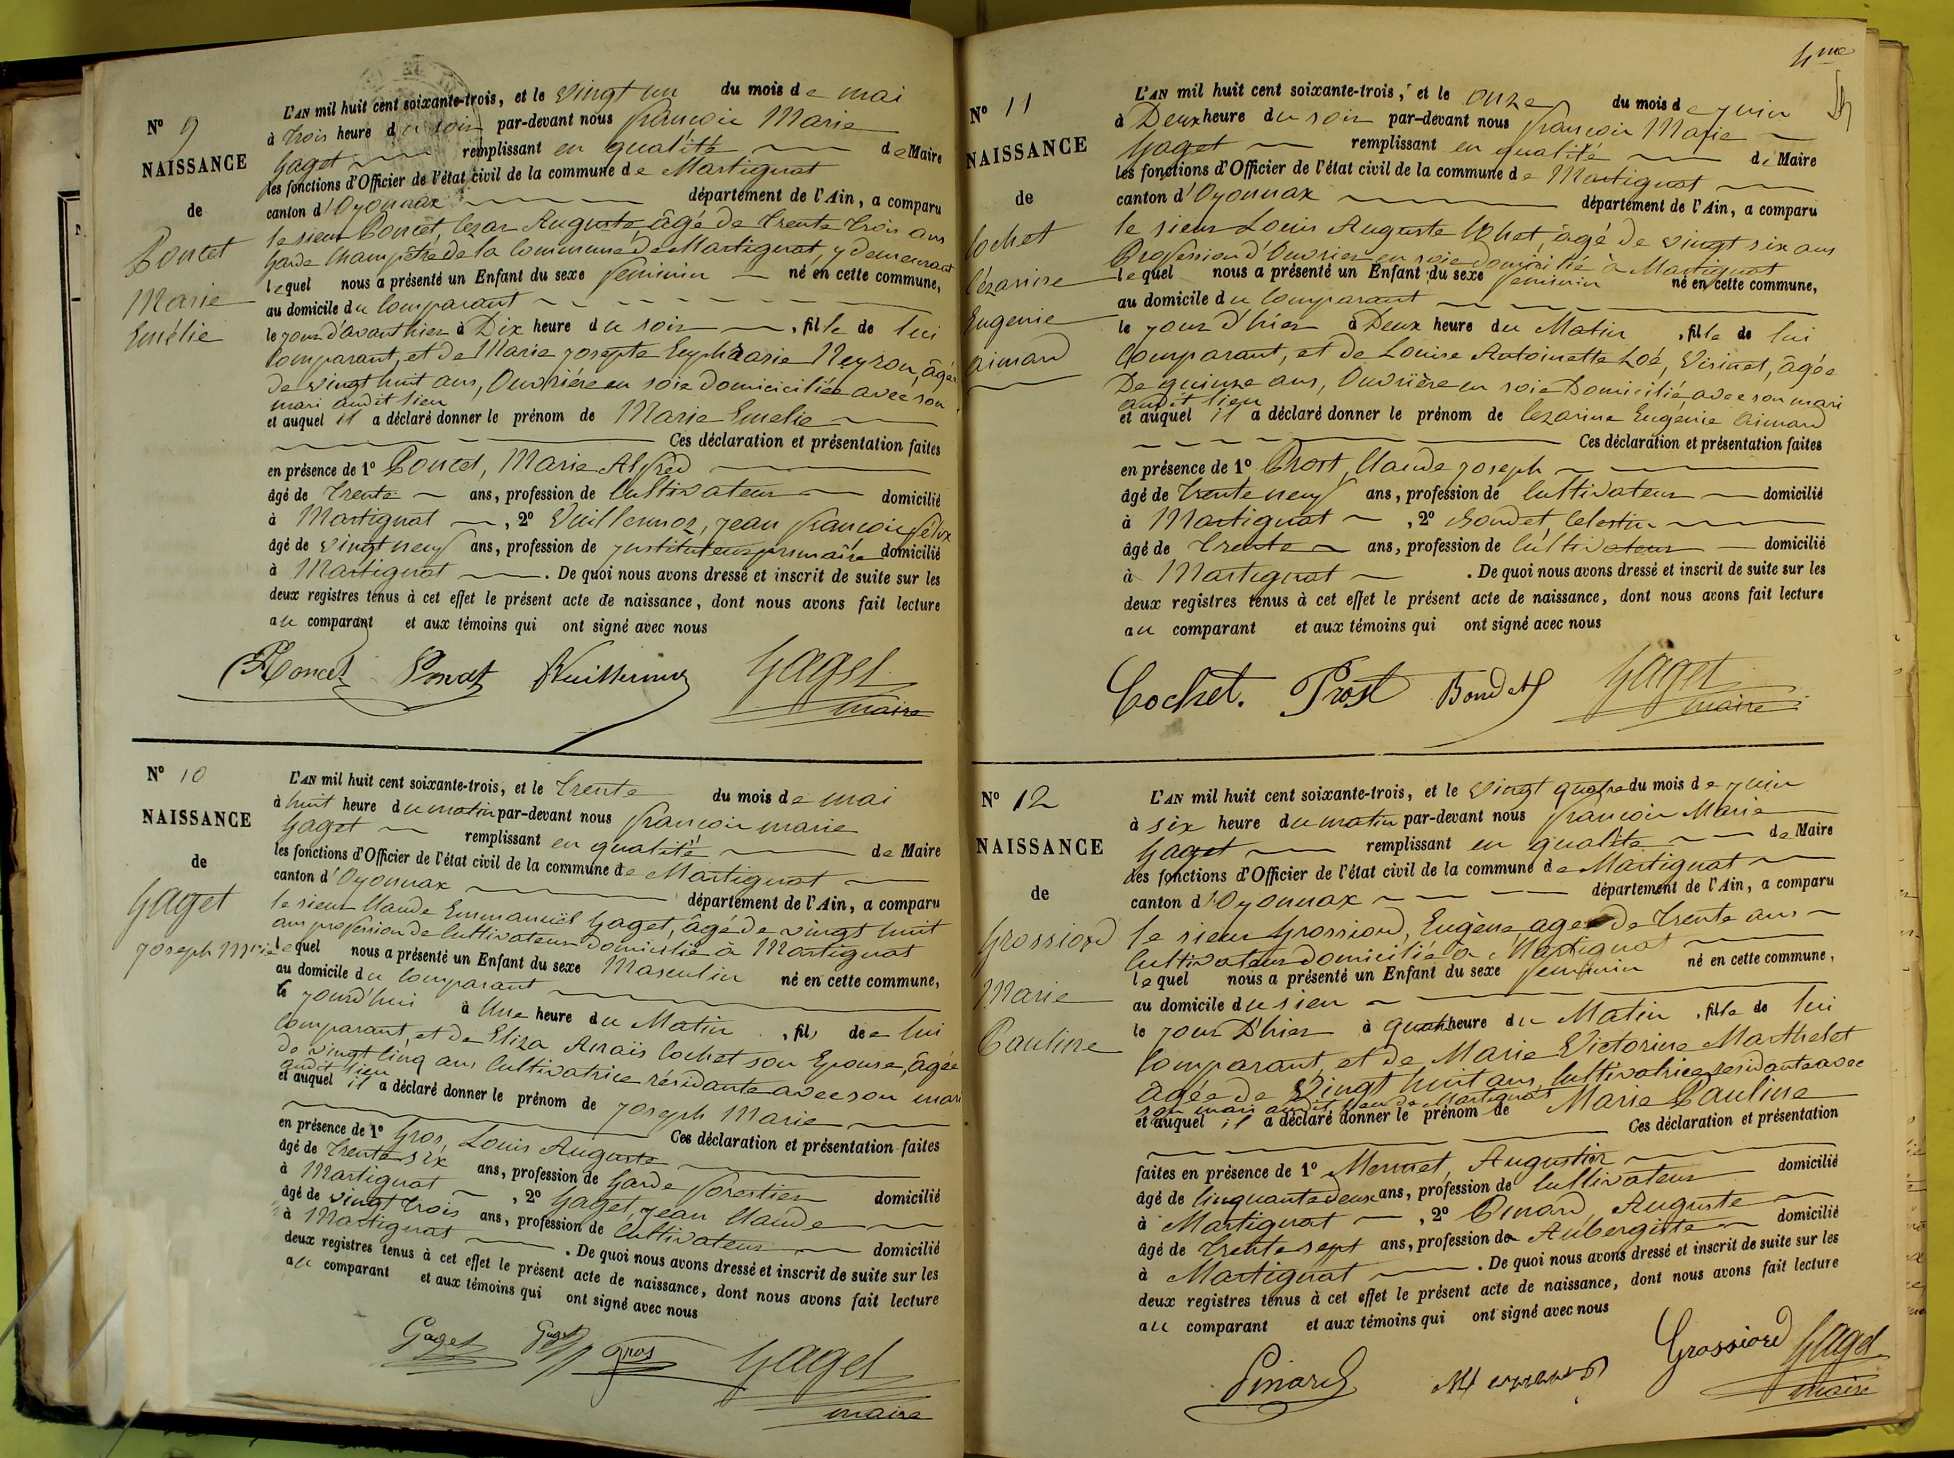 N° 9
NAISSANCE
de
Poncet
Marie
Emélie
L'AN mil huit cent soixante-trois, et le vingt un du mois de mai
à trois heure du soir par-devant nous françois Marie
Gaget remplissant en qualité de Maire
les fonctions d'Officier de l'état civil de la commune de Martignat
canton d'Oyonnax département de l'Ain, a comparu
le sieur Poncet, Cezar Auguste âgé de trente trois ans
Garde Champêtre de la Commune de Martignat, y demeurant
lequel nous a présenté un Enfant du sexe feminin né en cette commune,
au domicile du Comparant
le jour d'avant hier à Dix heure du soir, fille de lui
Comparant, et de Marie josepte Euphrasie Neyron, âgée
de vingt huit ans, Ouvrière en soie domiciciliée avec son
mari audit lieu
et auquel il a déclaré donner le prénom de Marie Emelie
Ces déclaration et présentation faites
en présence de 1° Poncet, Marie Alfred
âgé de trente ans, profession de Cultivateur domicilié
à Martignat, 2° Vuillermoz, jean françois félix
âgé de vingt neuf ans, profession de jnstituteur primaire domicilié
à Martignat. De quoi nous avons dressé et inscrit de suite sur les
deux registres tenus à cet effet le présent acte de naissance, dont nous avons fait lecture
au comparant et aux témoins qui ont signé avec nous
Poncet Poncet Vuillermoz Gaget
maire
N° 10
NAISSANCE
de
Gaget
joseph Mrie
L'AN mil huit cent soixante-trois, et le trente du mois de mai
à huit heure du matin par-devant nous françois marie
Gaget remplissant en qualité de Maire
les fonctions d'Officier de l'état civil de la commune de Martignat
canton d'Oyonnax département de l'Ain, a comparu
le sieur Claude Emmanuel Gaget, âgé de vingt huit
ans profession de Cultivateur domicilié à Martignat
lequel nous a présenté un Enfant du sexe Masculin né en cette commune,
au domicile du Comparant
le jourd'hui à Une heure du Matin, fils de lui
Comparant, et de Eliza Anaïs Cochet son Epouse, âgée
de vingt cinq ans Cultivatrice résidante avec son mari
audit lieu
et auquel il a déclaré donner le prénom de joseph Marie
Ces déclaration et présentation faites
en présence de 1° Gros, Louis Auguste
âgé de trente six ans, profession de Garde forestier domicilié
à Martignat, 2° Gaget, jean Claude
âgé de vingt trois ans, profession de Cultivateur domicilié
à Martignat. De quoi nous avons dressé et inscrit de suite sur les
deux registres tenus à cet effet le présent acte de naissance, dont nous avons fait lecture
au comparant et aux témoins qui ont signé avec nous
Gaget Gaget Gros Gaget
maire
4me
N° 11
NAISSANCE
de
Cochet
Cézarine
Eugenie
aimard
L'AN mil huit cent soixante-trois, et le onze du mois de juin
à Deux heure du soir par-devant nous françois Marie
Gaget remplissant en qualité de Maire
les fonctions d'Officier de l'état civil de la commune de Martignat
canton d'Oyonnax département de l'Ain, a comparu
le sieur Louis Auguste Cochet, âgé de vingt six ans
Profession d'Ouvrier en soie domicilié à Martignat
lequel nous a présenté un Enfant du sexe feminin né en cette commune,
au domicile du Comparant
le jour d'hier à Deux heure du Matin, fille de lui
Comparant, et de Louise Antoinette Zoé, Virinet, âgée
De quinze ans, Ouvrière en soie Domicilié avec son mari
audit lieu
et auquel il a déclaré donner le prénom de Cezarine Eugenie aimard
Ces déclaration et présentation faites
en présence de 1° Prost, Claude joseph
âgé de trente neuf ans, profession de Cultivateur domicilié
à Martignat, 2° Bondet, Celestin
âgé de trente ans, profession de Cultivateur domicilié
à Martignat. De quoi nous avons dressé et inscrit de suite sur les
deux registres tenus à cet effet le présent acte de naissance, dont nous avons fait lecture
au comparant et aux témoins qui ont signé avec nous
Cochet. Prost Bondet Gaget
maire
N° 12
NAISSANCE
de
Grossiord
Marie
Pauline
L'AN mil huit cent soixante-trois, et le vingt quatre du mois de juin
à six heure du matin par-devant nous françois Marie
Gaget remplissant en qualité de Maire
les fonctions d'Officier de l'état civil de la commune de Martignat
canton d'Oyonnax département de l'Ain, a comparu
le sieur Grossiord, Eugène, agé de trente ans
Cultivateur domicilié à Martignat
lequel nous a présenté un Enfant du sexe feminin né en cette commune,
au domicile du sien
le jour D'hier à quatre heure du Matin, fille de lui
Comparant, et de Marie Victorine Marthelet
âgée de Vingt huit ans, Cultivatrice résidante avec
son mari audit lieu de Martignat
et auquel il a déclaré donner le prénom de Marie Pauline
Ces déclaration et présentation
faites en présence de 1° Mermet, Augustin
âgé de Cinquante deux ans, profession de Cultivateur domicilié
à Martignat, 2° Pinard, Auguste
âgé de trente sept ans, profession de Aubergiste domicilié
à Martignat. De quoi nous avons dressé et inscrit de suite sur les
deux registres tenus à cet effet le présent acte de naissance, dont nous avons fait lecture
au comparant et aux témoins qui ont signé avec nous
Pinard Mermet Grossiord Gaget
maire